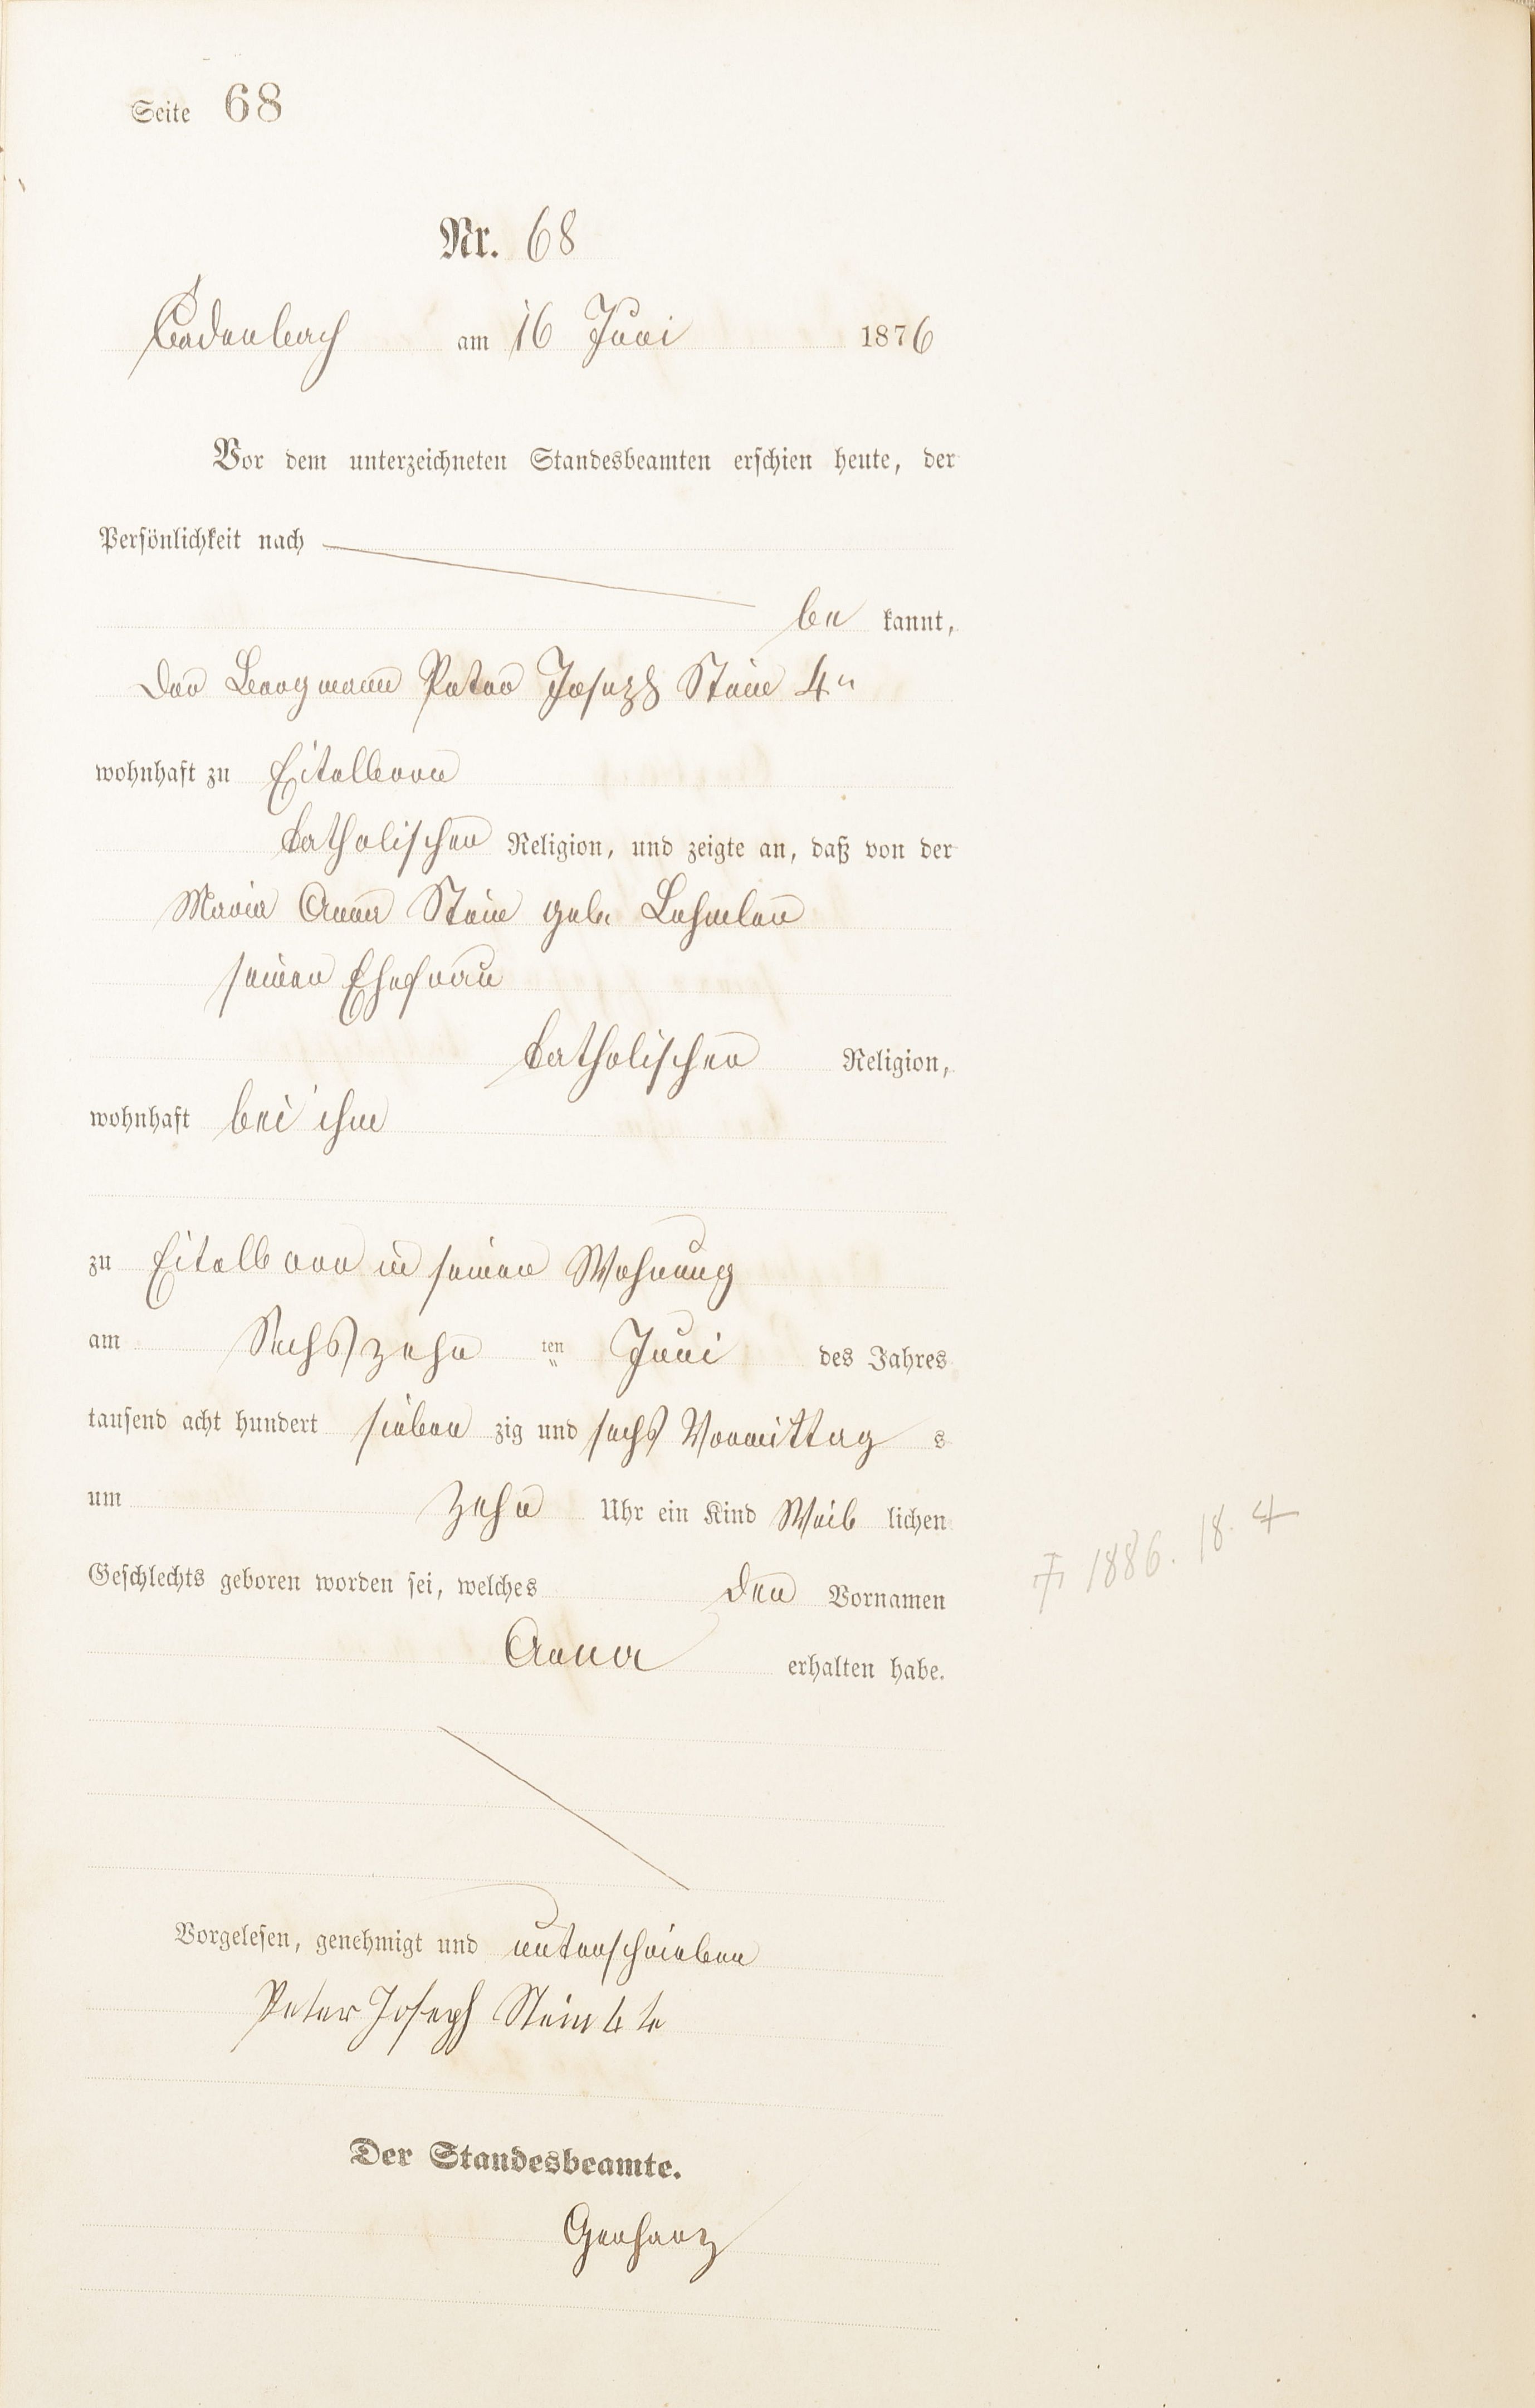 Seite 68
Nr. 68
Cadenbach am 16 Juni 1876
Vor dem unterzeichneten Standesbeamten erschien heute, der
Persönlichkeit nach
be kannt,
der Bergmann Peter Joseph Stein 4r
wohnhaft zu Eitelborn
katholischer Religion, und zeigte an, daß von der
Maria Anna Stein geb. Lehmler
seiner Ehefrau
katholischer Religion,
wohnhaft bei ihm
zu Eitelborn in seiner Wohnung
am Sechszehn ten Juni des Jahres
tausend acht hundert sieben zig und sechs Vormittag s
um Zehn Uhr ein Kind Weib lichen
Geschlechts geboren worden sei, welches den Vornamen
† 1886. 18. 4
Anna erhalten habe.
Vorgelesen, genehmigt und unterschrieben
Peter Joseph Stein 4 te
Der Standesbeamte.
Gerharz